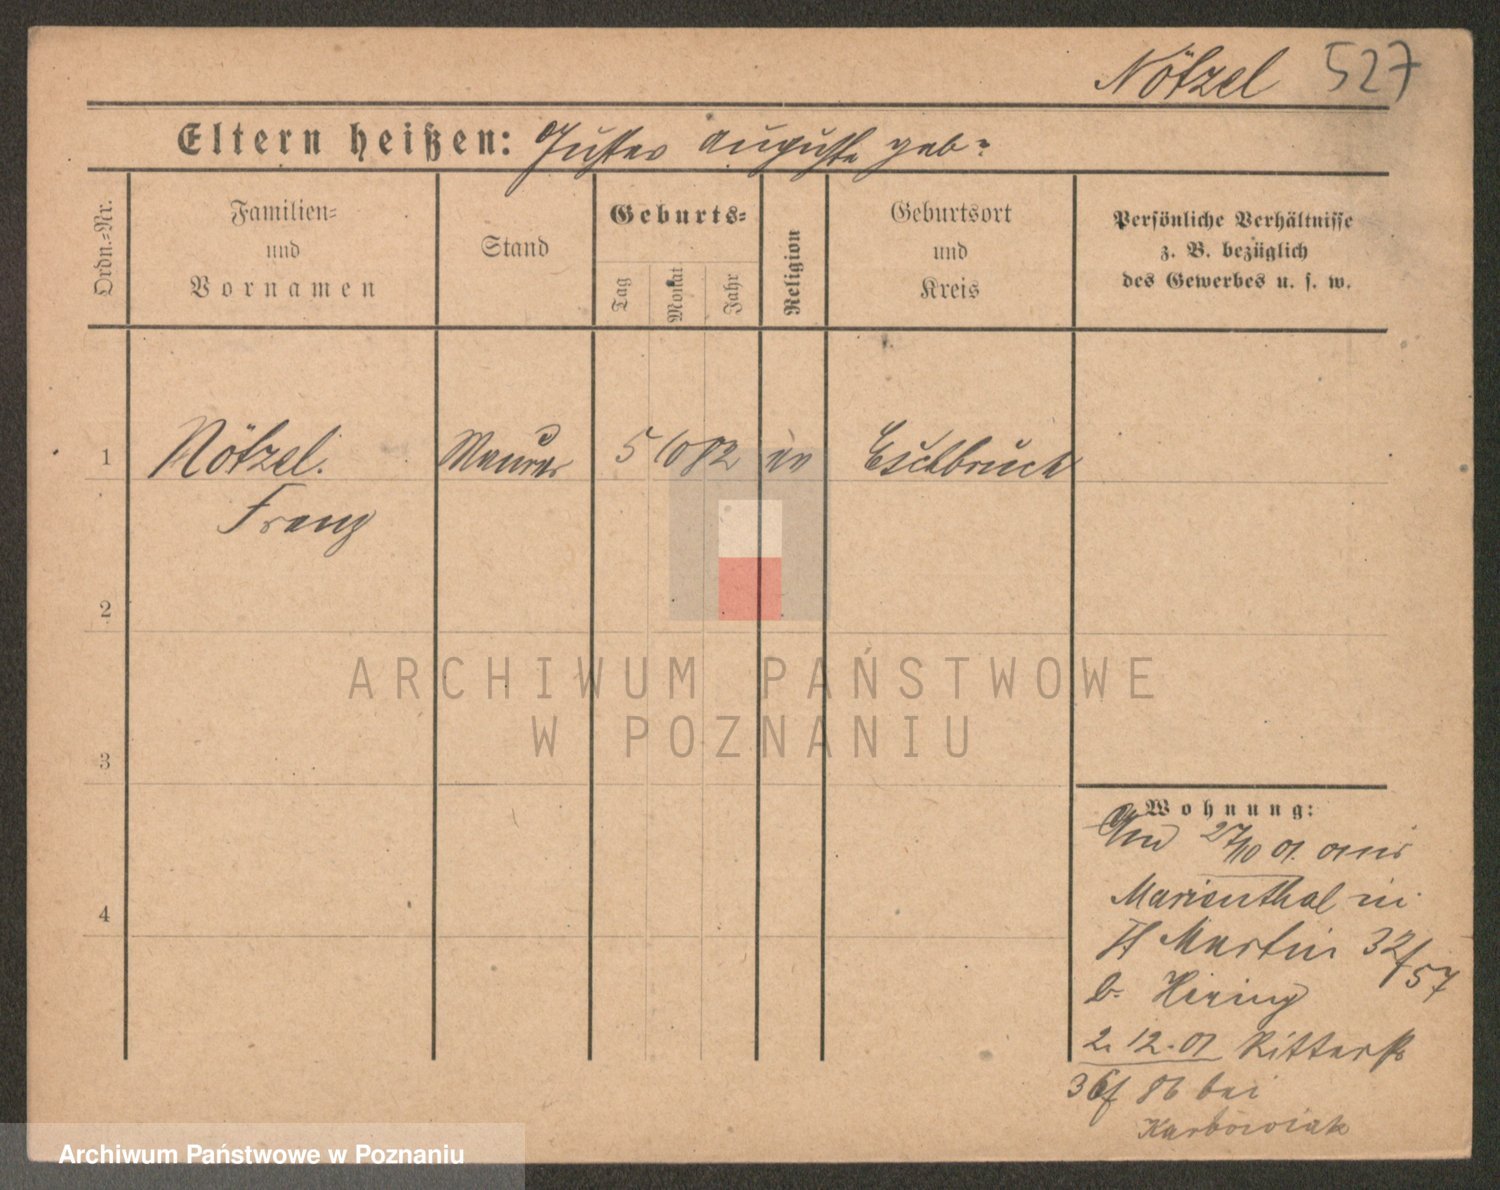 Nötzel 527
Eltern heißen: Gustav Auguste geb ?
Ordn.-Nr.
Familien-
und
Vornamen
Stand
Geburts-
Tag
Monat
Jahr
Religion
Geburtsort
und
Kreis
Persönliche Verhältnisse
z. B. bezüglich
des Gewerbes u. s. w.
1 Nötzel. Maurer 5 10 82 ev Eschbruch
Franz
2
3
4
ARCHIWUM PAŃSTWOWE
W POZNANIU
Wohnung:
27/10 01. aus
Marienthal in
St Martin 32/57
b. Hering
2. 12. 01 Ritterst
36/ 86 bei
Karbowiak
Archiwum Państwowe w Poznaniu